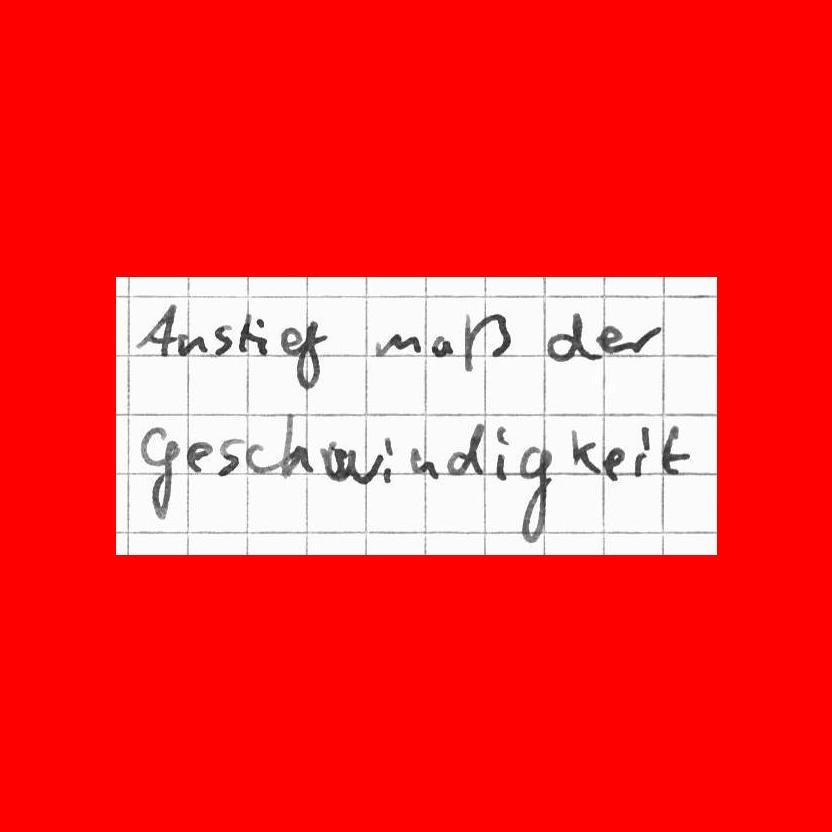 Anstieg maß der
geschwindigkeit